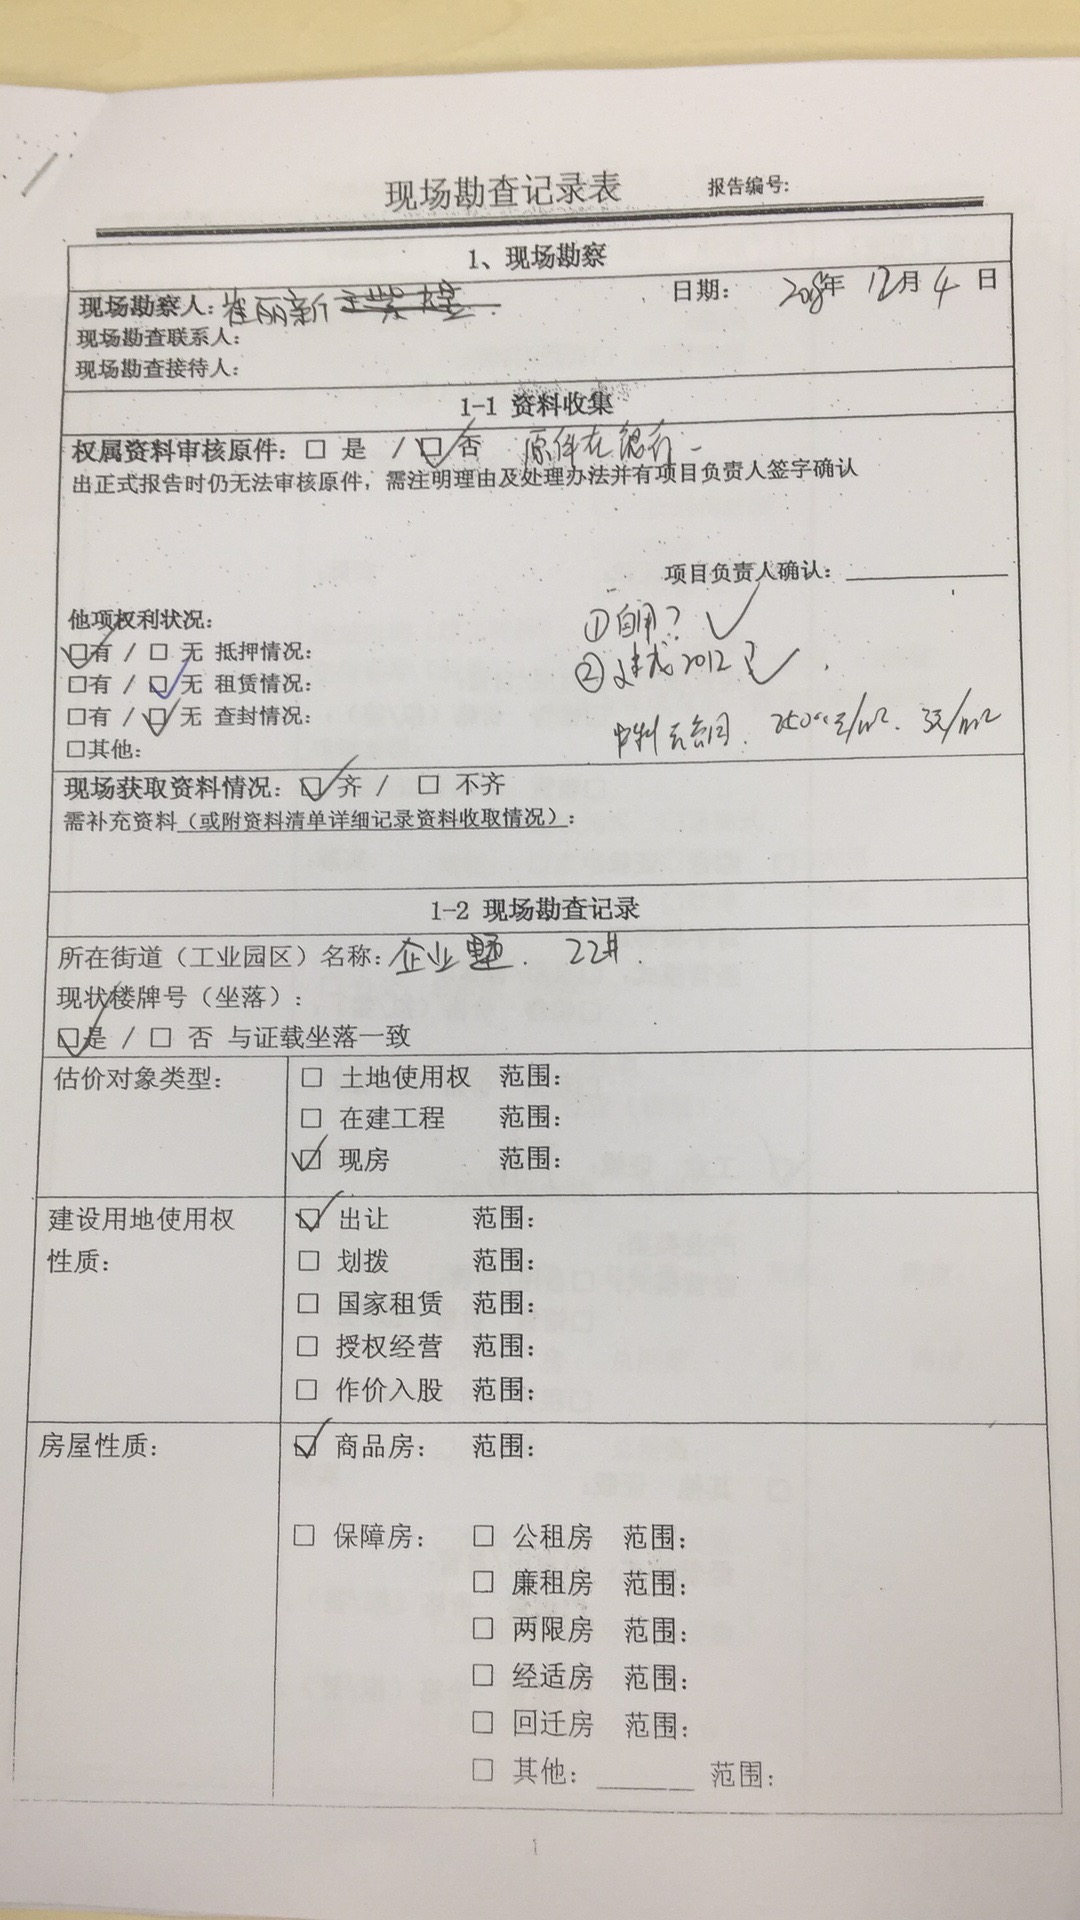 现场勘查记录表 报告编号:
1、现场勘察
现场勘察人: 崔丽新 日期: 2018年 12月 4 日
现场勘查联系人:
现场勘查接待人:
1-1 资料收集
权属资料审核原件: □ 是 / ☑ 否 原件在银行
出正式报告时仍无法审核原件, 需注明理由及处理办法并有项目负责人签字确认
项目负责人确认:
他项权利状况: ①自用? ✓
☑有 / □ 无 抵押情况: ②建成2012 ✓
□有 / ☑ 无 租赁情况:
□有 / ☑ 无 查封情况: 合同. 25000元/m². 3元/m²
□其他:
现场获取资料情况: ☑ 齐 / □ 不齐
需补充资料(或附资料清单详细记录资料收取情况):
1-2 现场勘查记录
所在街道(工业园区)名称: 企业 22#.
现状楼牌号(坐落):
☑是 / □ 否 与证载坐落一致
估价对象类型: □ 土地使用权 范围:
□ 在建工程 范围:
☑ 现房 范围:
建设用地使用权 ☑ 出让 范围:
性质: □ 划拨 范围:
□ 国家租赁 范围:
□ 授权经营 范围:
□ 作价入股 范围:
房屋性质: ☑ 商品房: 范围:
□ 保障房: □ 公租房 范围:
□ 廉租房 范围:
□ 两限房 范围:
□ 经适房 范围:
□ 回迁房 范围:
□ 其他: ______ 范围:
1